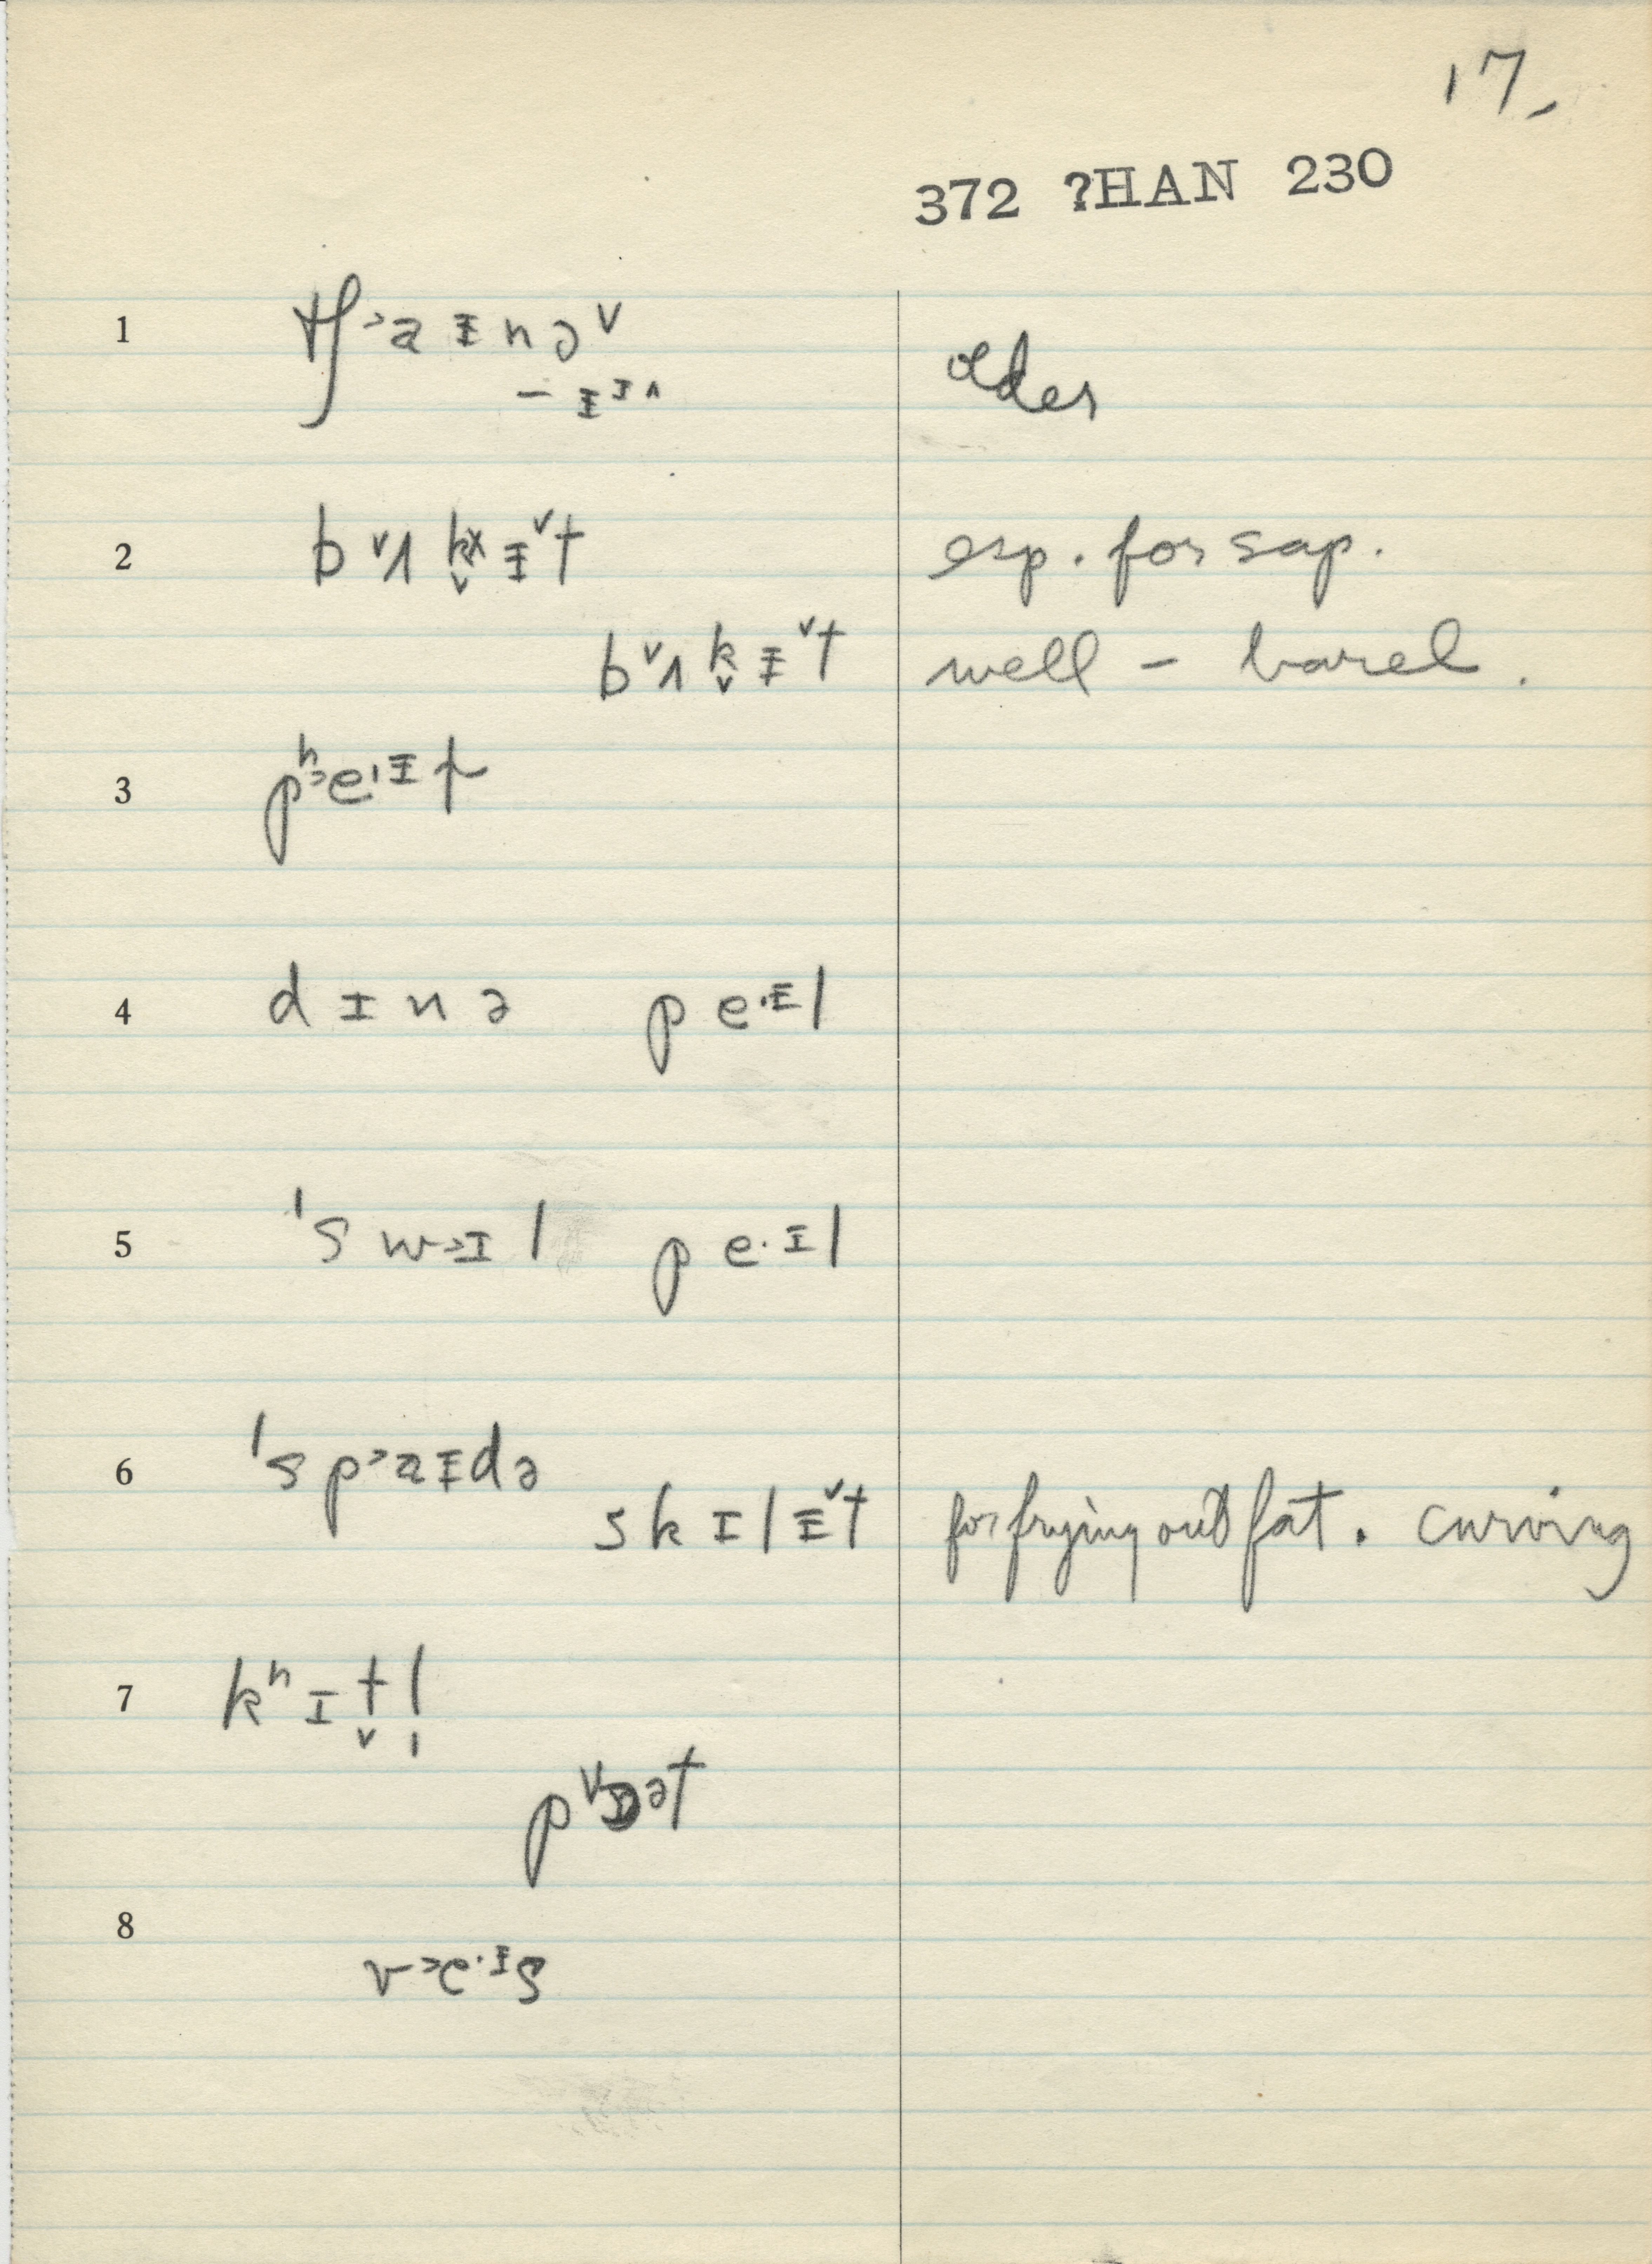 17.
372 ?HAN 230
1 tʃ˃aɪnə˅ older
– ɪᶦ˄
2 b˅ʌk̬ɪ˅t esp. for sap.
b˅ʌk̬ɪ˅t well – barrel.
3 pʰ˃e·ɪɫ
4 dɪnə pe·ɪl
5 ˈsw˃ɪl pe·ɪl
6 ˈsp˃aɪdə
skɪlɪ˅t for frying out fat. curving
7 kʰɪt̬l̩
p˅ɒət
8
v˃e·ɪs